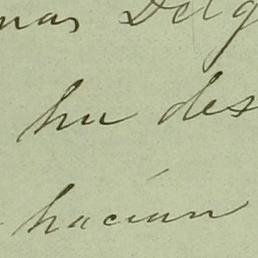 mas Delg
hu des
hacían